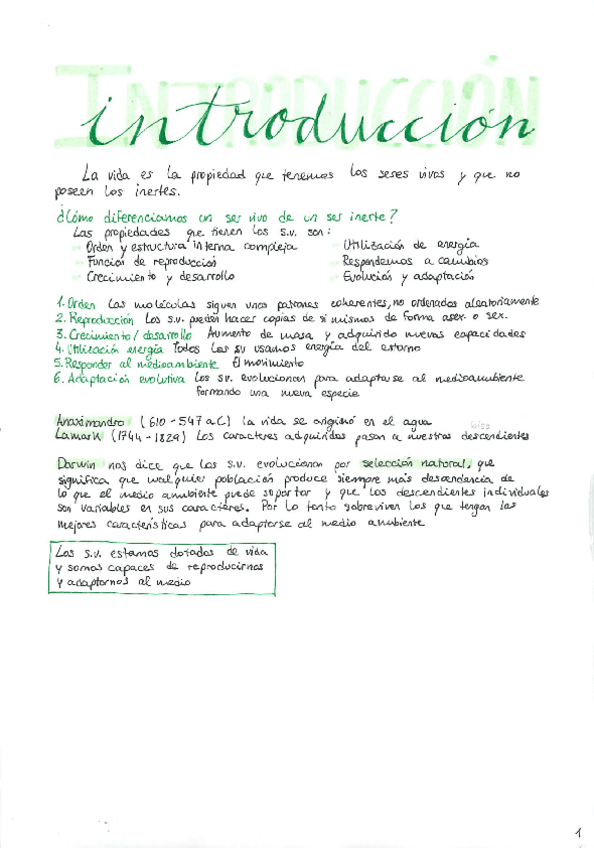 INTRODUCCIÓN
introducción
La vida es la propiedad que tenemos los seres vivos y que no
poseen los inertes.
¿Cómo diferenciamos un ser vivo de un ser inerte?
Las propiedades que tienen los s.v. son:
- Orden y estructura interna compleja
- Función de reproducción
- Crecimiento y desarrollo
- Utilización de energía
- Respondemos a cambios
- Evolución y adaptación
1. Orden Las moléculas siguen unos patrones coherentes, no ordenados aleatoriamente
2. Reproducción Los s.v. pueden hacer copias de si mismos de forma asex. o sex.
3. Crecimiento / desarrollo Aumento de masa y adquirido nuevas capacidades
4. Utilización energía Todos los sv usamos energía del entorno
5. Responder al medioambiente El movimiento
6. Adaptación evolutiva Los s.v. evolucionan para adaptarse al medioambiente
formando una nueva especie
Anaximandro (610-547 a.C) la vida se originó en el agua
Lamark (1744-1829) Los caracteres adquiridos pasan a nuestros descendientes
Darwin nos dice que los s.v. evolucionan por selección natural, que
significa que cualquier población produce siempre más descendencia de
lo que el medio ambiente puede soportar y que los descendientes individuales
son variables en sus caracteres. Por lo tanto sobreviven los que tengan las
mejores características para adaptarse al medio ambiente
Los s.v. estamos dotados de vida
y somos capaces de reproducirnos
y adaptarnos al medio
1